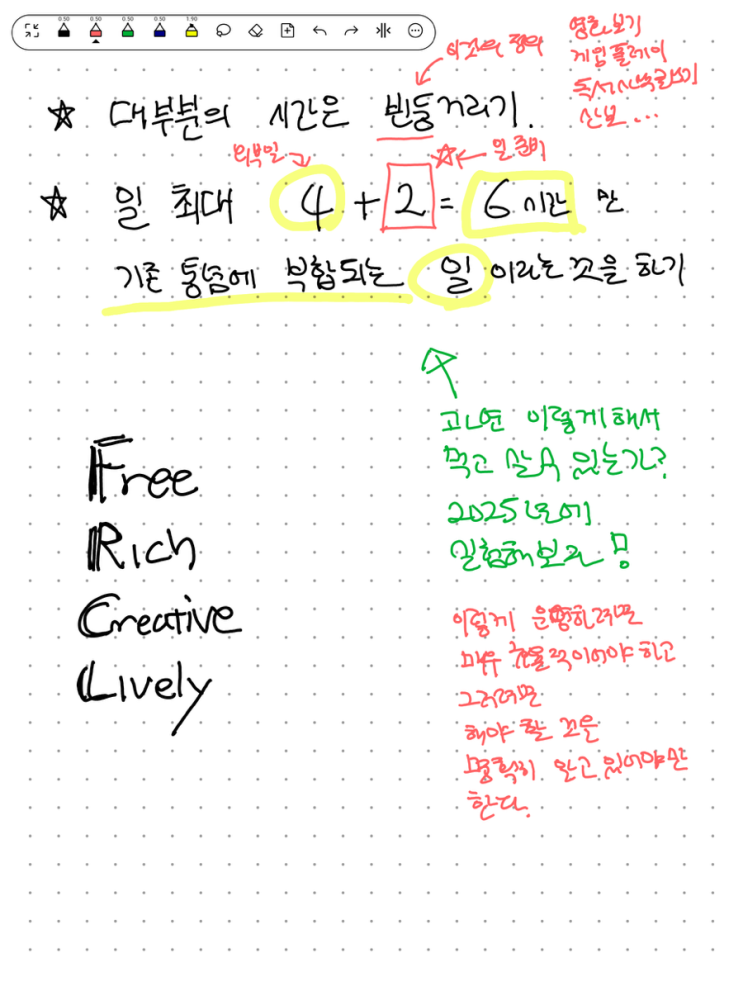 0.50 0.50 0.50 0.50 1.90
이것의 정의
영화보기
게임플레이
독서
산보...
☆ 대부분의 시간은 빈둥거리기.
외부일
☆← 일 준비
☆ 일 최대 4 + 2 = 6 시간 만
기존 통념에 부합되는 일 이라는 것을 하기
과연 이렇게 해서
먹고 살 수 있는가?
2025년에
실험해보자!
Free
Rich
Creative
Lively
이렇게 운영하려면
매우 효율적이어야 하고
그러려면
해야 할 것을
명확히 알고 있어야만
한다.